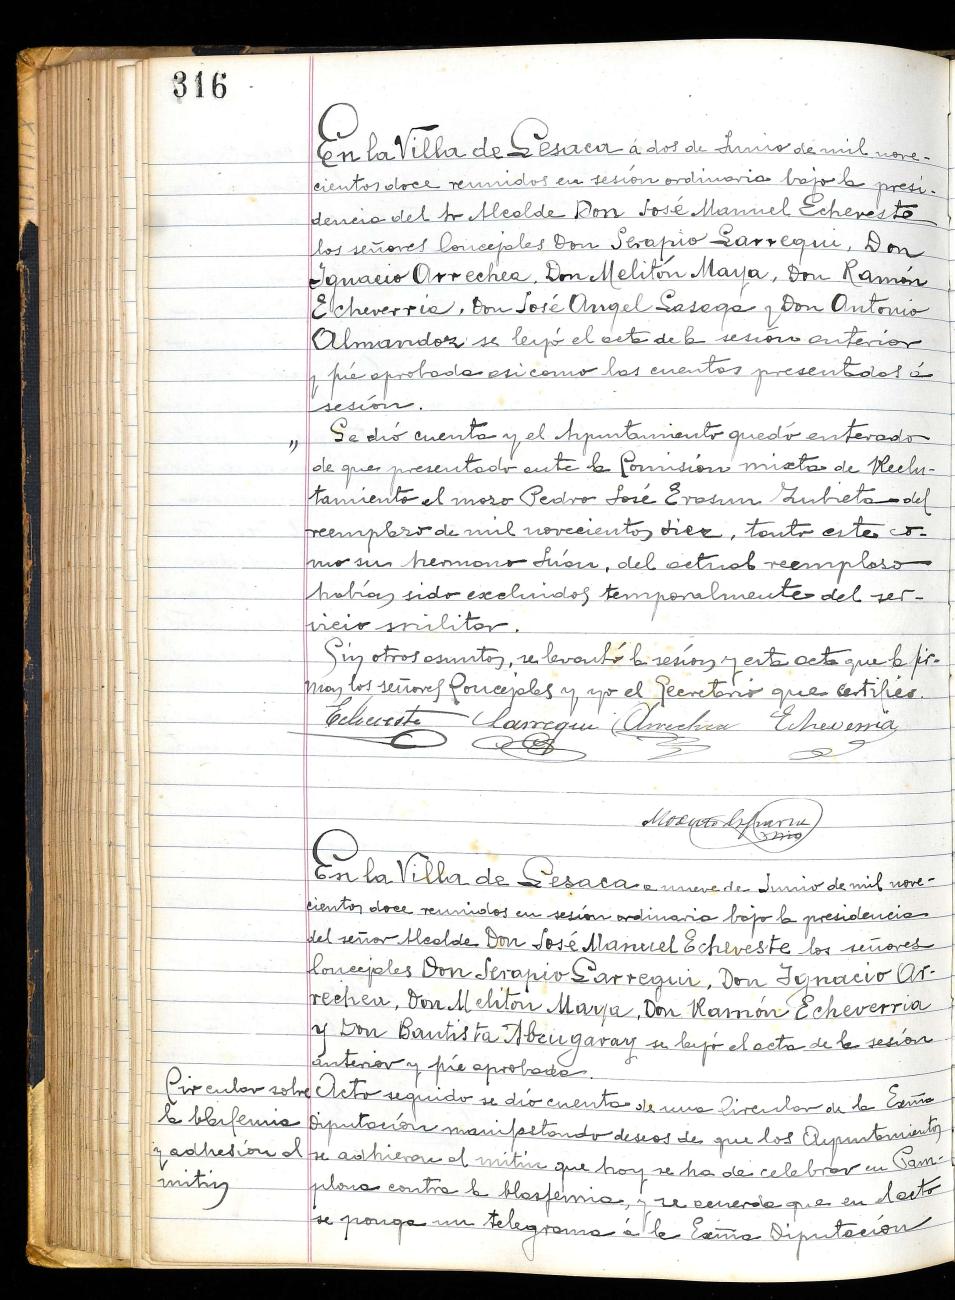 316
En la Villa de Lesaca á dos de Junio de mil nove-
cientos doce reunidos en sesión ordinaria bajo la presi-
dencia del Sr Alcalde Don José Manuel Echeveste
los señores Concejales Don Serapio Larregui, Don
Ignacio Arrechea, Don Melitón Maya, Don Ramón
Echeverria, Don José Angel Lasaga y Don Antonio
Almandoz se leyó el acta de la sesión anterior
y fué aprobada asi como las cuentas presentadas á
sesión.
„ Se dió cuenta y el Ayuntamiento quedó enterado
de que presentado ante la Comisión mixta de Reclu-
tamiento el mozo Pedro José Erasun Zubieta del
reemplazo de mil novecientos diez, tanto este co-
mo su hermano Juan, del actual reemplazo
habían sido excluidos temporalmente del ser-
vicio militar.
Sin otros asuntos, se levantó la sesión y esta acta que la fir-
man los señores Concejales y yo el Secretario que certifico.
Echeveste Larregui Arrechea Echeverria
En la Villa de Lesaca a nueve de Junio de mil nove-
cientos doce reunidos en sesión ordinaria bajo la presidencia
del señor Alcalde Don José Manuel Echeveste los señores
Concejales Don Serapio Larregui, Don Ignacio Ar-
rechea, Don Melitón Maya, Don Ramón Echeverria
y Don Bautista Abeugaray se leyó el acta de la sesión
anterior y fué aprobada.
Circular sobre
la blasfemia
y adhesión al
mitin
Acto seguido se dió cuenta de una Circular de la Exma
Diputación manifestando deseos de que los Ayuntamientos
se adhieran al mitin que hoy se ha de celebrar en Pam-
plona contra la blasfemia, y se acuerda que en el acto
se ponga un telegrama á la Exma Diputación